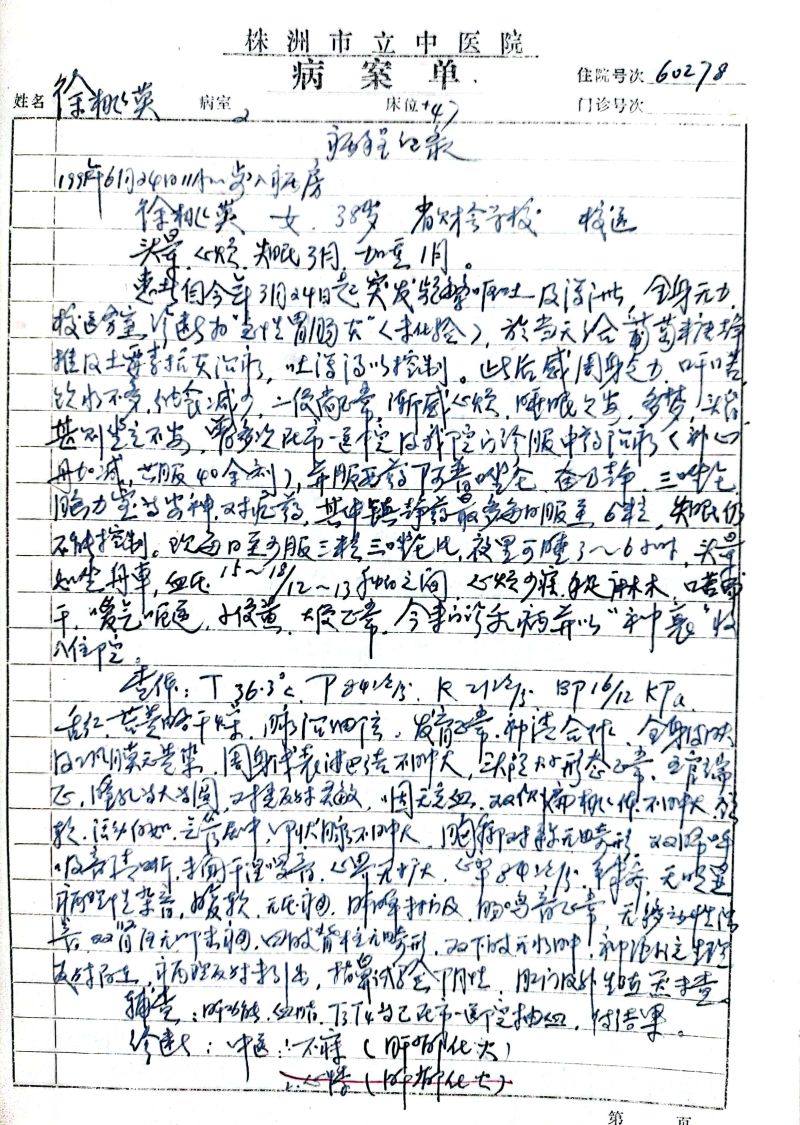 株洲市立中医院
病案单
住院号次 60278
姓名 徐桃英 病室 2 床位 +47 门诊号次
病程记录
6月24日11 入病房
徐桃英 女 38岁 学校 校医
头晕、心烦、失眠3月,加重1月。
患者自今年3月24日起突发 呕吐及溏泄,全身无力,
校医室诊断为“急性胃肠炎”(未化验),于当天给葡萄糖静
推及土霉素抗炎治疗,吐泻得以控制。此后感周身乏力,口干口苦,
饮水不多,纳食减少,二便尚正常,渐感心烦,睡眠欠安,多梦,头晕
甚则坐立不安,曾多次在市一医院及我院门诊服中药治疗(补心
丹加减,共服40余剂),并服西药 奋乃静、三唑仑、
脑力宝等安神对症药,其中镇静药最多每日服至6粒,失眠仍
不能控制。现每日至少服三粒三唑仑片,夜里可睡3~6小时,头晕
如坐舟車,血压15~18/12~13 之间,心烦少寐,手足麻木,口苦而
干,嗳气呃逆,小便黄,大便正常,今来门诊 病并以“ 衰”收
入住院。
查体:T 36.3℃ P 84次/分 R 21次/分 BP 16/12 KPa
舌红,苔黄略干燥,脉沉细弦,发育正常,神清合作,全身皮肤
及巩膜无黄染,周身浅表淋巴结不肿大,头颅大小形态正常,五官端
正,瞳孔等大等圆,对光反射灵敏,咽无充血,双侧扁桃体不肿大,颈
软,活动自如,气管居中,甲状腺不肿大,胸廓对称无畸形,双肺呼
吸音清晰,未闻干湿啰音,心界无扩大,心率84次/分,律齐,无明显
病理性杂音,腹软,无压痛,肝脾未扪及,肠鸣音正常,无移动性浊
音,双肾区无叩击痛,四肢脊柱无畸形,双下肢无水肿,神经系统生理
反射存在,病理反射未引出,指鼻试验阴性,肛门及外生殖器未查。
辅查:肝功能、血脂、T3T4等已在市一医院抽血,待结果。
诊断:中医:不寐(肝郁化火)
(肝郁化火)
第 页